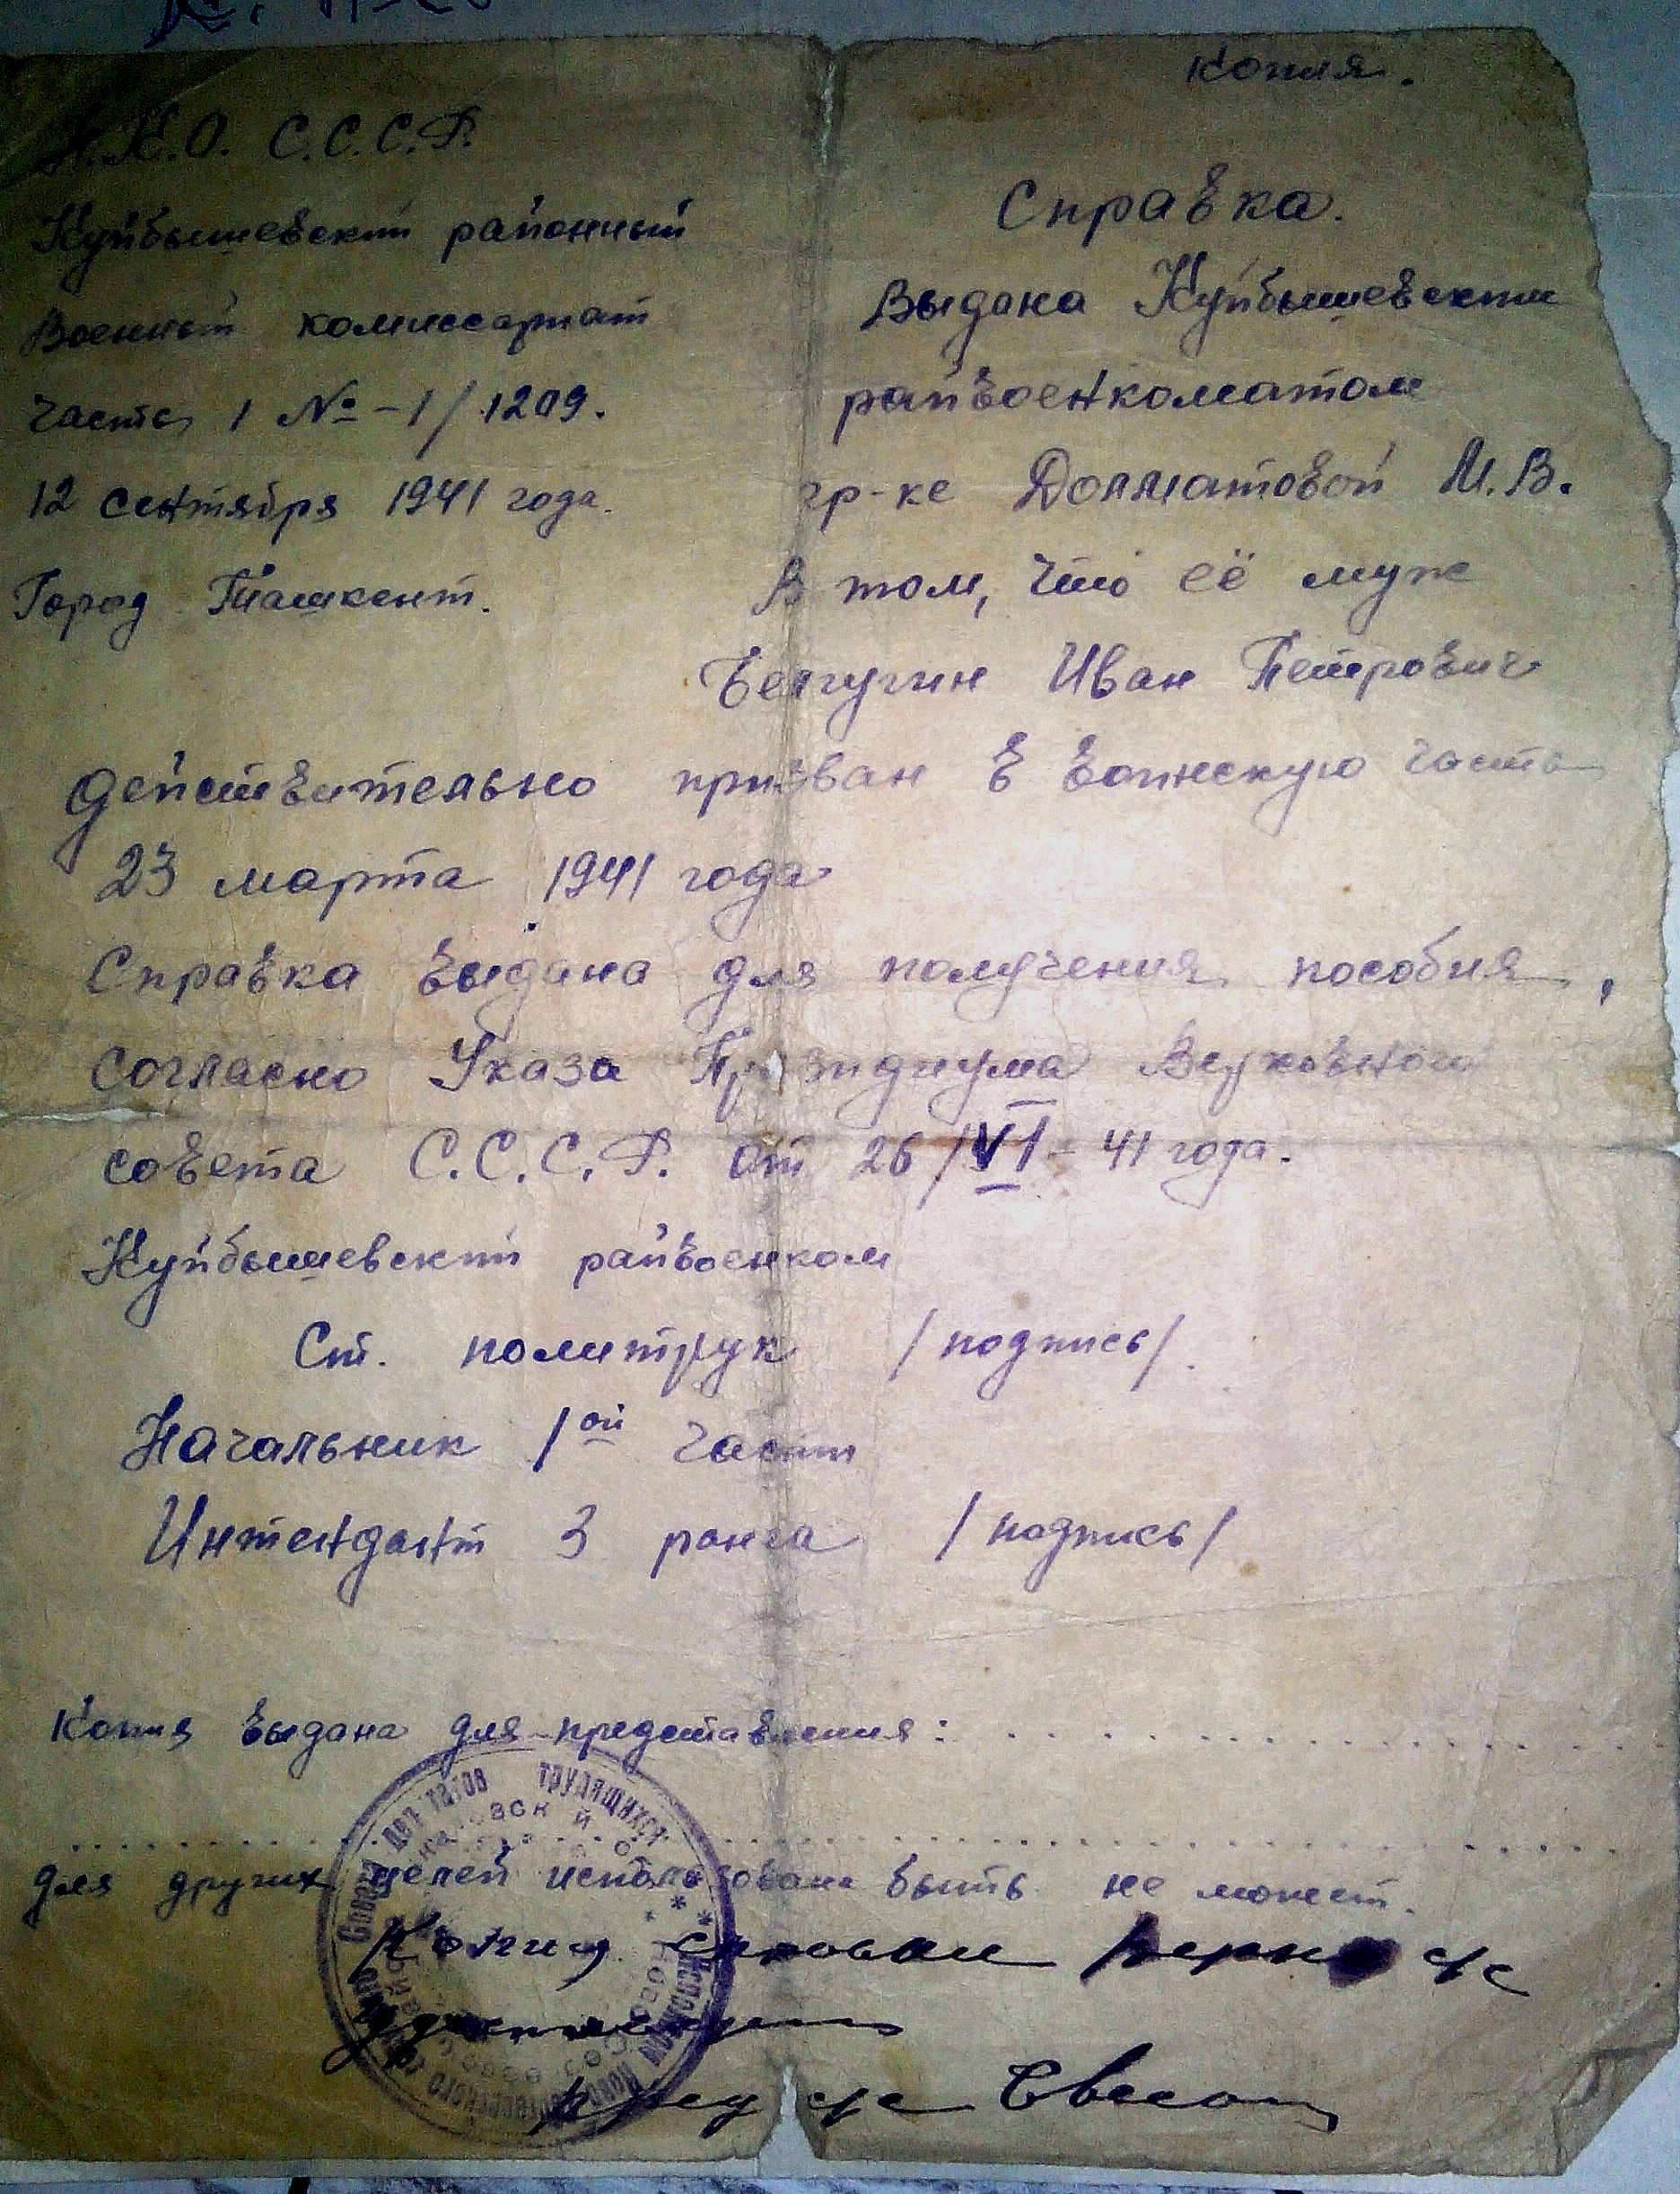 Копия.
Н.К.О. С.С.С.Р.
Куйбышевский районный
Военный комиссариат
Часть 1 № -1/1209.
12 сентября 1941 года.
Город Ташкент.
Справка.
Выдана Куйбышевским
райвоенкоматом
гр-ке Долматовой М.В.
В том, что её муж
Иван Петрович
действительно призван в воинскую часть
23 марта 1941 года
Справка выдана для получения пособия,
согласно Указа Президиума Верховного
совета С.С.С.Р. от 26/VI - 41 года.
Куйбышевский райвоенком
Ст. политрук /подпись/.
Начальник 1ой части
Интендант 3 ранга /подпись/
Копия выдана для представления: . . . . . . . . . . . . . .
. . . . . . . . . . . . . . . . . . . . . . . . . . . .
для других целей использована быть не может.
Копия верна с/с
пред с/с
Совета депутатов трудящихся
Исполком